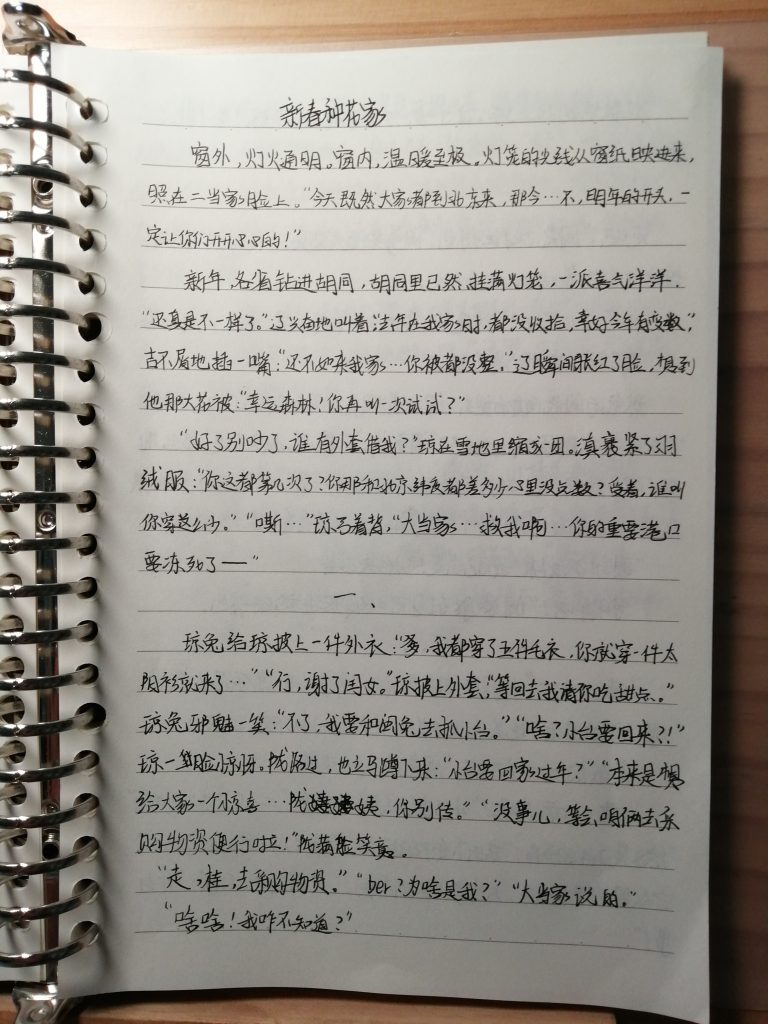 新春种花家
窗外，灯火通明。窗内，温暖至极。灯笼的光线从窗纸映进来，
照在二当家脸上。“今天既然大家都到北京来，那今…不，明年的开头，一
定让你们开开心心的！”
新年，各省钻进胡同，胡同里已然挂满灯笼，一派喜气洋洋，
“还真是不一样了。”辽兴奋地叫着，“去年在我家时，都没收拾，幸好今年有变数”，
吉不屑地插一嘴：“还不如来我家…你被都没整。”辽瞬间胀红了脸，想到
他那大花被：“幸运森林！你再叫一次试试？”
“好了别吵了，谁有外套借我？”琼在雪地里缩成一团。滇裹紧了羽
绒服：“你这都第几次了？你那和北京纬度都差多少心里没点数？受着，谁叫
你穿这么少。”“嘶…”琼弓着背，“大当家…救我啊…你的重要港口
要冻死了——”
一、
琼兔给琼披上一件外衣：“爹，我都穿了五件毛衣，你就穿一件太
阳衫就来了…”“行，谢了闺女。”琼披上外套，“等回去我请你吃甜点。”
琼兔邪魅一笑：“不了，我要和闽兔去抓小台。”“啥？小台要回来？！”
琼一脸惊讶。陇路过，也立马蹲下来：“小台要回家过年？”“本来是想
给大家一个惊喜…陇姨，你别传。”“没事儿，等会咱俩去采
购物资便行啦！”陇满脸笑意。
“走，桂，去采购物资。”“ber？为啥是我？”“大当家说的。”
“啥啥！我咋不知道？”